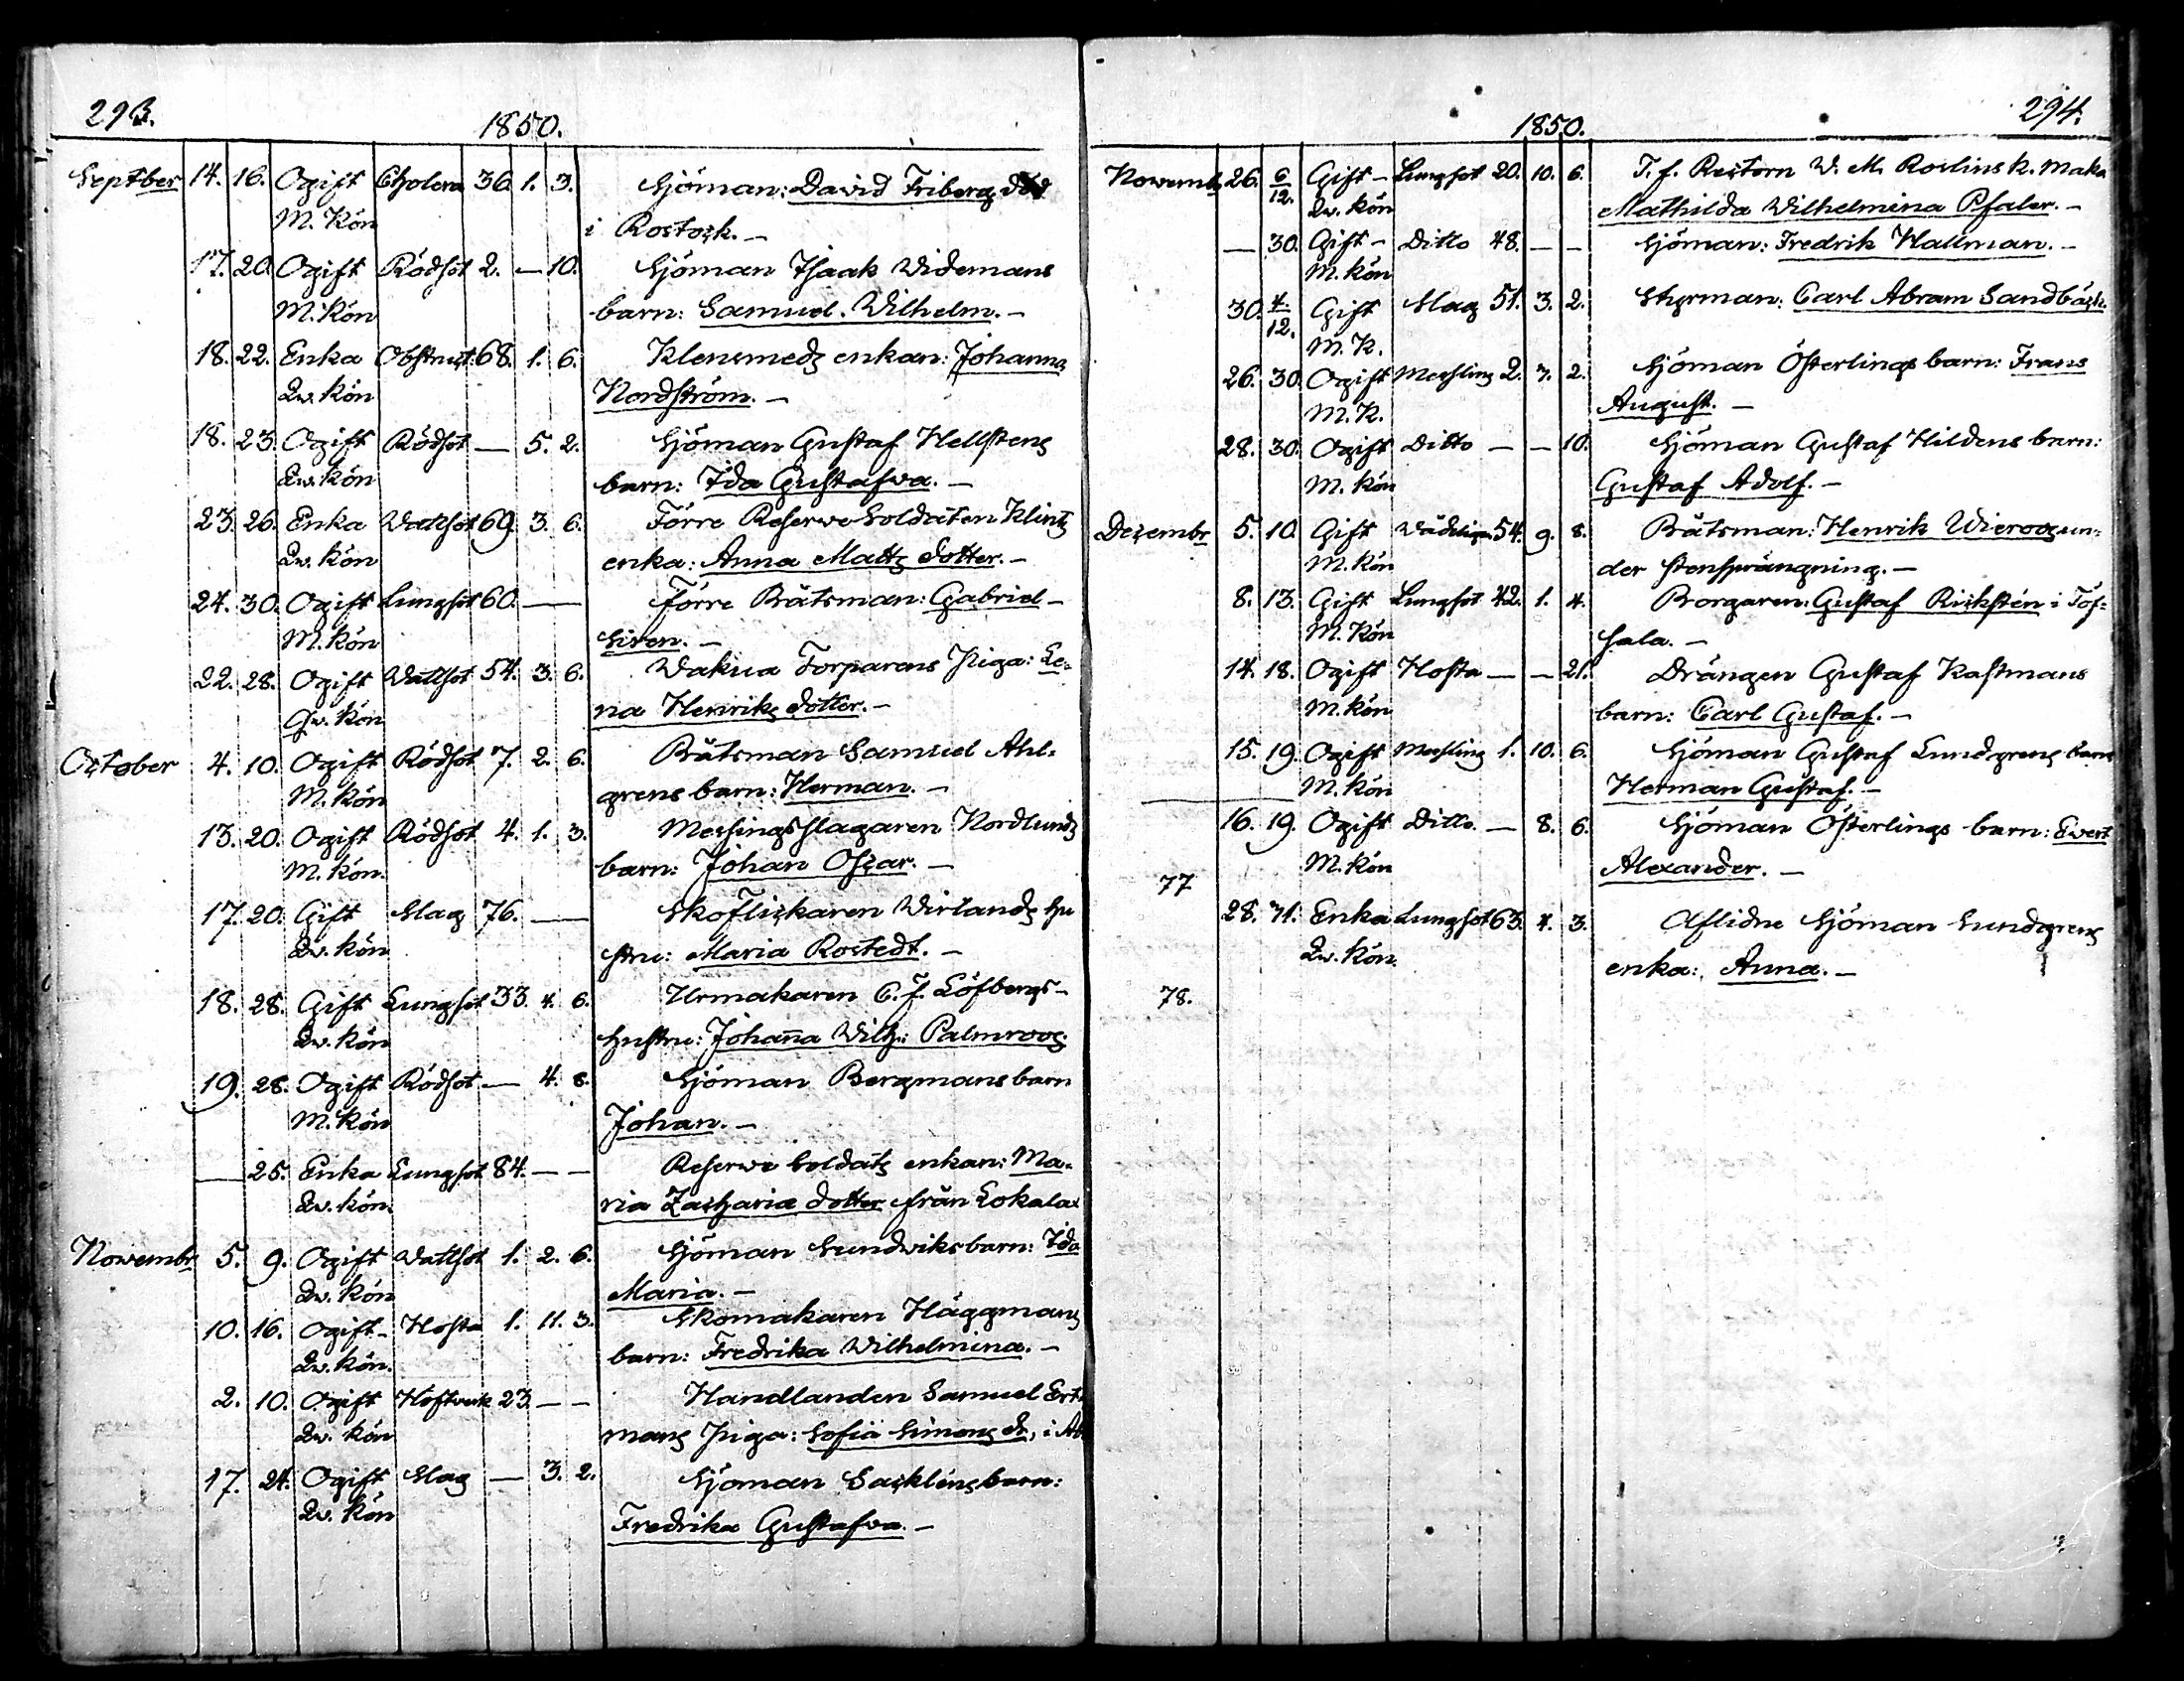 293.
1850.
Septber 14. 16. Ogift Cholera 36. 1. 3. Sjöman: David Friberg död
M. Kön i Rostock. —
17. 20. Ogift Rödsot 2. — 10. Sjöman Isaak Widemans
M. Kön barn: Samuel. Wilhelm. —
18. 22. Enka Obstruct. 68. 1. 6. Klensmeds enkan: Johanna
Qw. Kön Nordström. —
18. 23. Ogift Rödsot — 5. 2. Sjöman Gustaf Hellstens
Qw. Kön barn: Ida Gustafva. —
23. 26. Enka Wattsot 69. 3. 6. Förre Reserve Soldaten Klints
Qw. Kön enka: Anna Matts dotter. —
24. 30. Ogift Lungsot 60. — Förre Båtsman: Gabriel —
M. Kön Siren. —
22. 28. Ogift Wattsot 54. 3. 6. Wakua Torparens Piga: Le-
Qw. Kön na Henriks dotter. —
October 4. 10. Ogift Rödsot 7. 2. 6. Båtsman Samuel Ahl-
M. Kön grens barn: Herman. —
13. 20. Ogift Rödsot 4. 1. 3. Messingsslagaren Nordlunds
M. Kön. barn: Johan Oscar. —
17. 20. Gift Slag 76. — Skoflickaren Wirlands hu
Qw. Kön stru: Maria Rostedt. —
18. 28. Gift Lungsot 33. 4. 6. Urmakaren C. J. Löfbergs —
Qw. Kön hustru: Johanna Wilh: Palmroos
19. 28. Ogift Rödsot — 4. 8. Sjöman Bergmans barn
M. Kön Johan. —
— 25. Enka Lungsot 84. — — Reserve Soldats enkan: Ma-
Qw. Kön. ria Zachariæ dotter från Lokalax
Novembr 5. 9. Ogift Wattsot 1. 2. 6. Sjöman Sundviks barn: Ida
Qw. Kön Maria. —
10. 16. Ogift — Hosta 1. 11. 3. Skomakaren Häggmans
Qw. Kön. barn: Fredrika Wilhelmina. —
2. 10. Ogift Höftverk 23. — — Handlanden Samuel Ert-
Qw. Kön mans Piga: Sofia Simons dr, i Åb
17. 24. Ogift Slag — 3. 2. Sjöman Sacklens barn:
Qw. Kön Fredrika Gustafva. —
294.
1850.
Novembr 26. 6/12. Gift — Lungsot 20. 10. 6. T. f. Rectorn W. M. Roslins k. Maka
Qw. Kön Mathilda Wilhelmina Pfaler. —
— 30. Gift — Ditto 48. — — Sjöman: Fredrik Hallman. —
M. Kön
30. 4/12. Gift Slag 51. 3. 2. Styrman: Carl Abram Sandbäck
M. K.
26. 30. Ogift Messling 2. 7. 2. Sjöman Österlings barn: Frans
M. K. August. —
28. 30. Ogift Ditto — — 10. Sjöman Gustaf Hildens barn:
M. Kön Gustaf Adolf. —
Decembr 5. 10. Gift 54. 9. 8. Båtsman: Henrik Wieroos un-
M. Kön der stensprängning. —
8. 13. Gift Lungsot 42. 1. 4. Borgaren: Gustaf Rickstén i Töf-
M. Kön sala. —
14. 18. Ogift Hosta — — 21. Drängen Gustaf Kastmans
M. Kön barn: Carl Gustaf. —
15. 19. Ogift Messling 1. 10. 6. Sjöman Gustaf Lundgrens barn
M. Kön Herman Gustaf. —
16. 19. Ogift Ditto. — 8. 6. Sjöman Österlings barn: Evert
M. Kön Alexander. —
77
28. 31. Enka Lungsot 63. 4. 3. Aflidne Sjöman Sundgrens
Qw. Kön. enka: Anna. —
78.